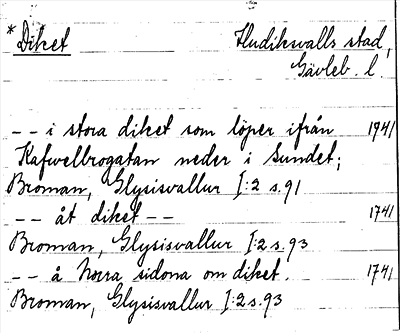 *Diket Hudiksvalls stad,
Gävleb. l.
-- i stora diket som löper ifrån 1941
Kafwelbrogatan neder i Sundet;
Broman, Glysisvallur I:2 s. 91
-- åt diket -- 1741
Broman, Glysisvallur I:2 s. 93
-- å Norra sidona om diket. 1741
Broman, Glysisvallur I:2 s. 93